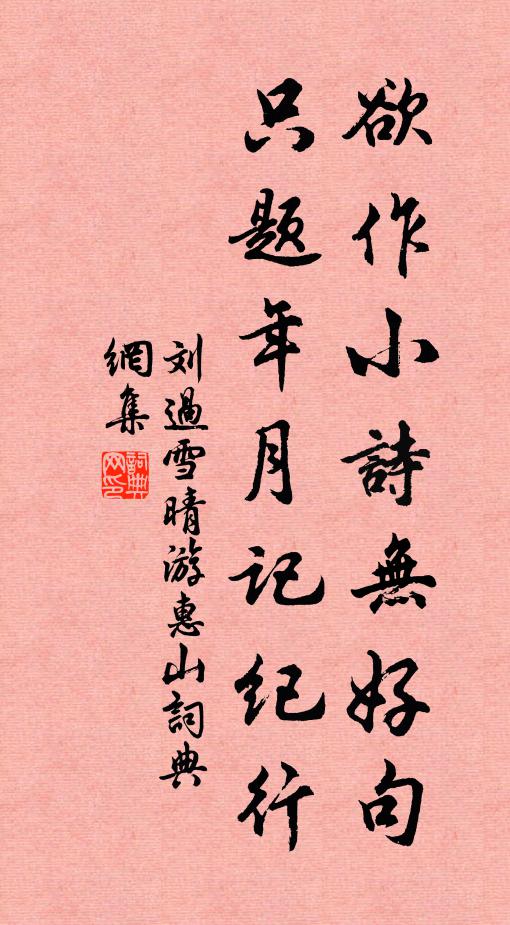 欲作小詩無好句
只题年月记纪行
刘過雪晴游惠山詞典
網集
詞典
网印